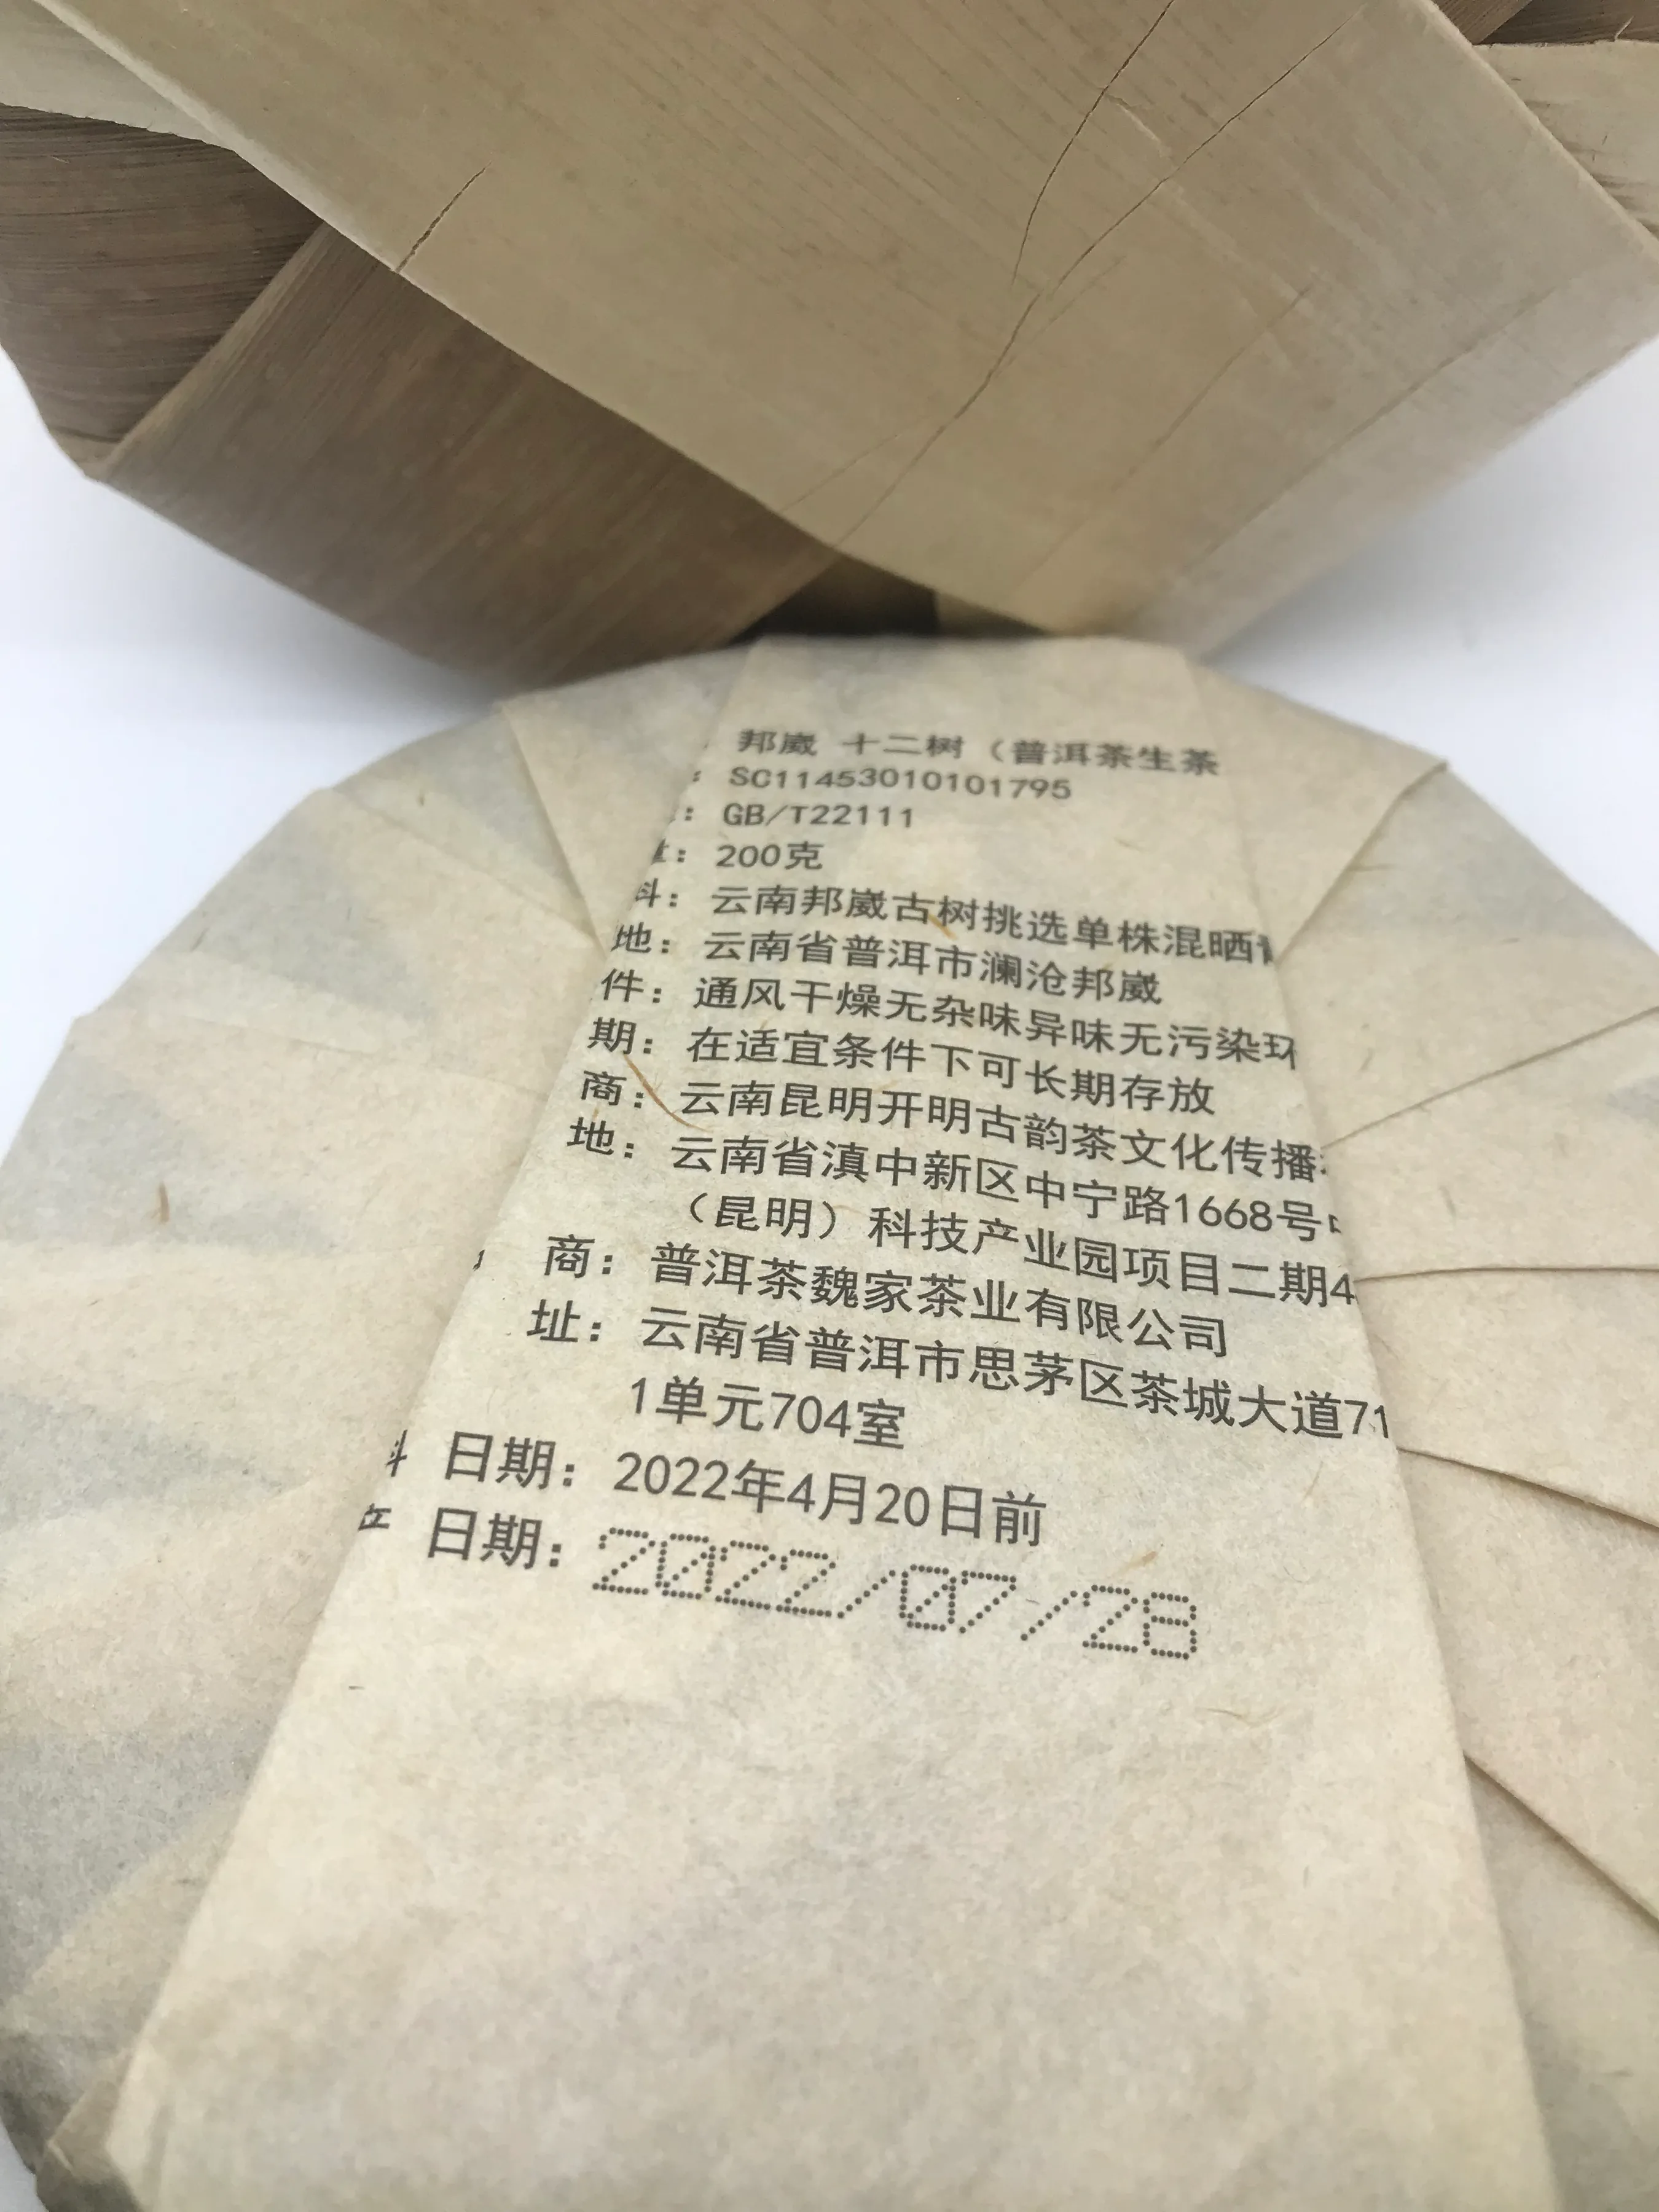 邦崴 十二树（普洱茶生茶
: SC11453010101795
: GB/T22111
: 200克
料: 云南邦崴古树挑选单株混晒
地: 云南省普洱市澜沧邦崴
件: 通风干燥无杂味异味无污染环
期: 在适宜条件下可长期存放
商: 云南昆明开明古韵茶文化传播
地: 云南省滇中新区中宁路1668号
（昆明）科技产业园项目二期4
商: 普洱茶魏家茶业有限公司
址: 云南省普洱市思茅区茶城大道71
1单元704室
日期: 2022年4月20日前
日期: 2022/07/28